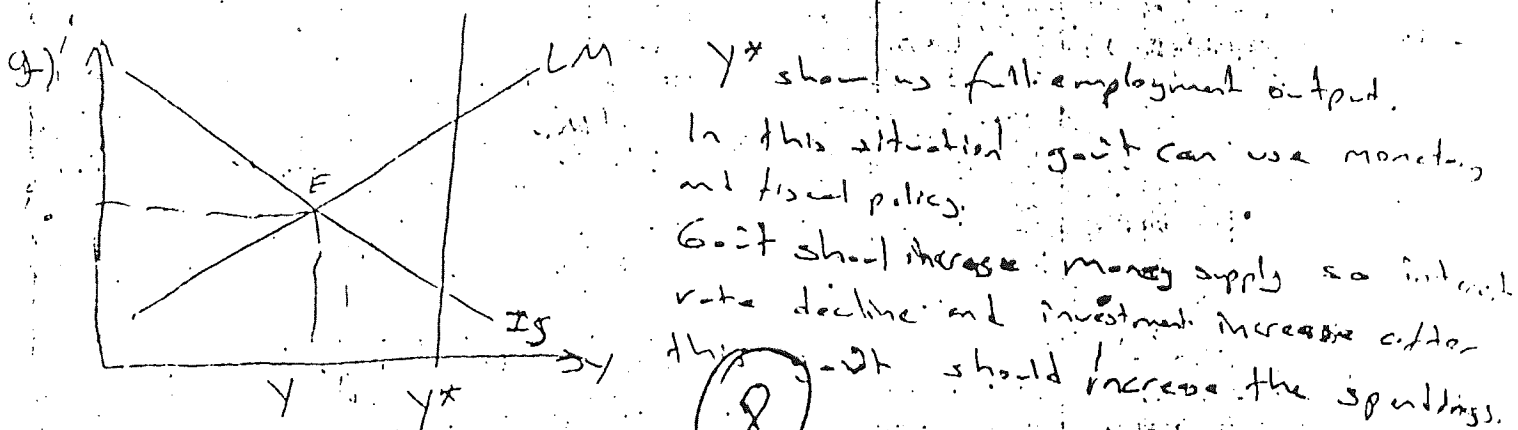 g) i
LM
E
IS
Y
Y
Y*
Y* show us full employment output.
In this situation gov't can use monetary
and fiscal policy.
Gov't shoul increase money supply so interest
rate decline and investment increase after
this gov't should increase the spenddings.
8